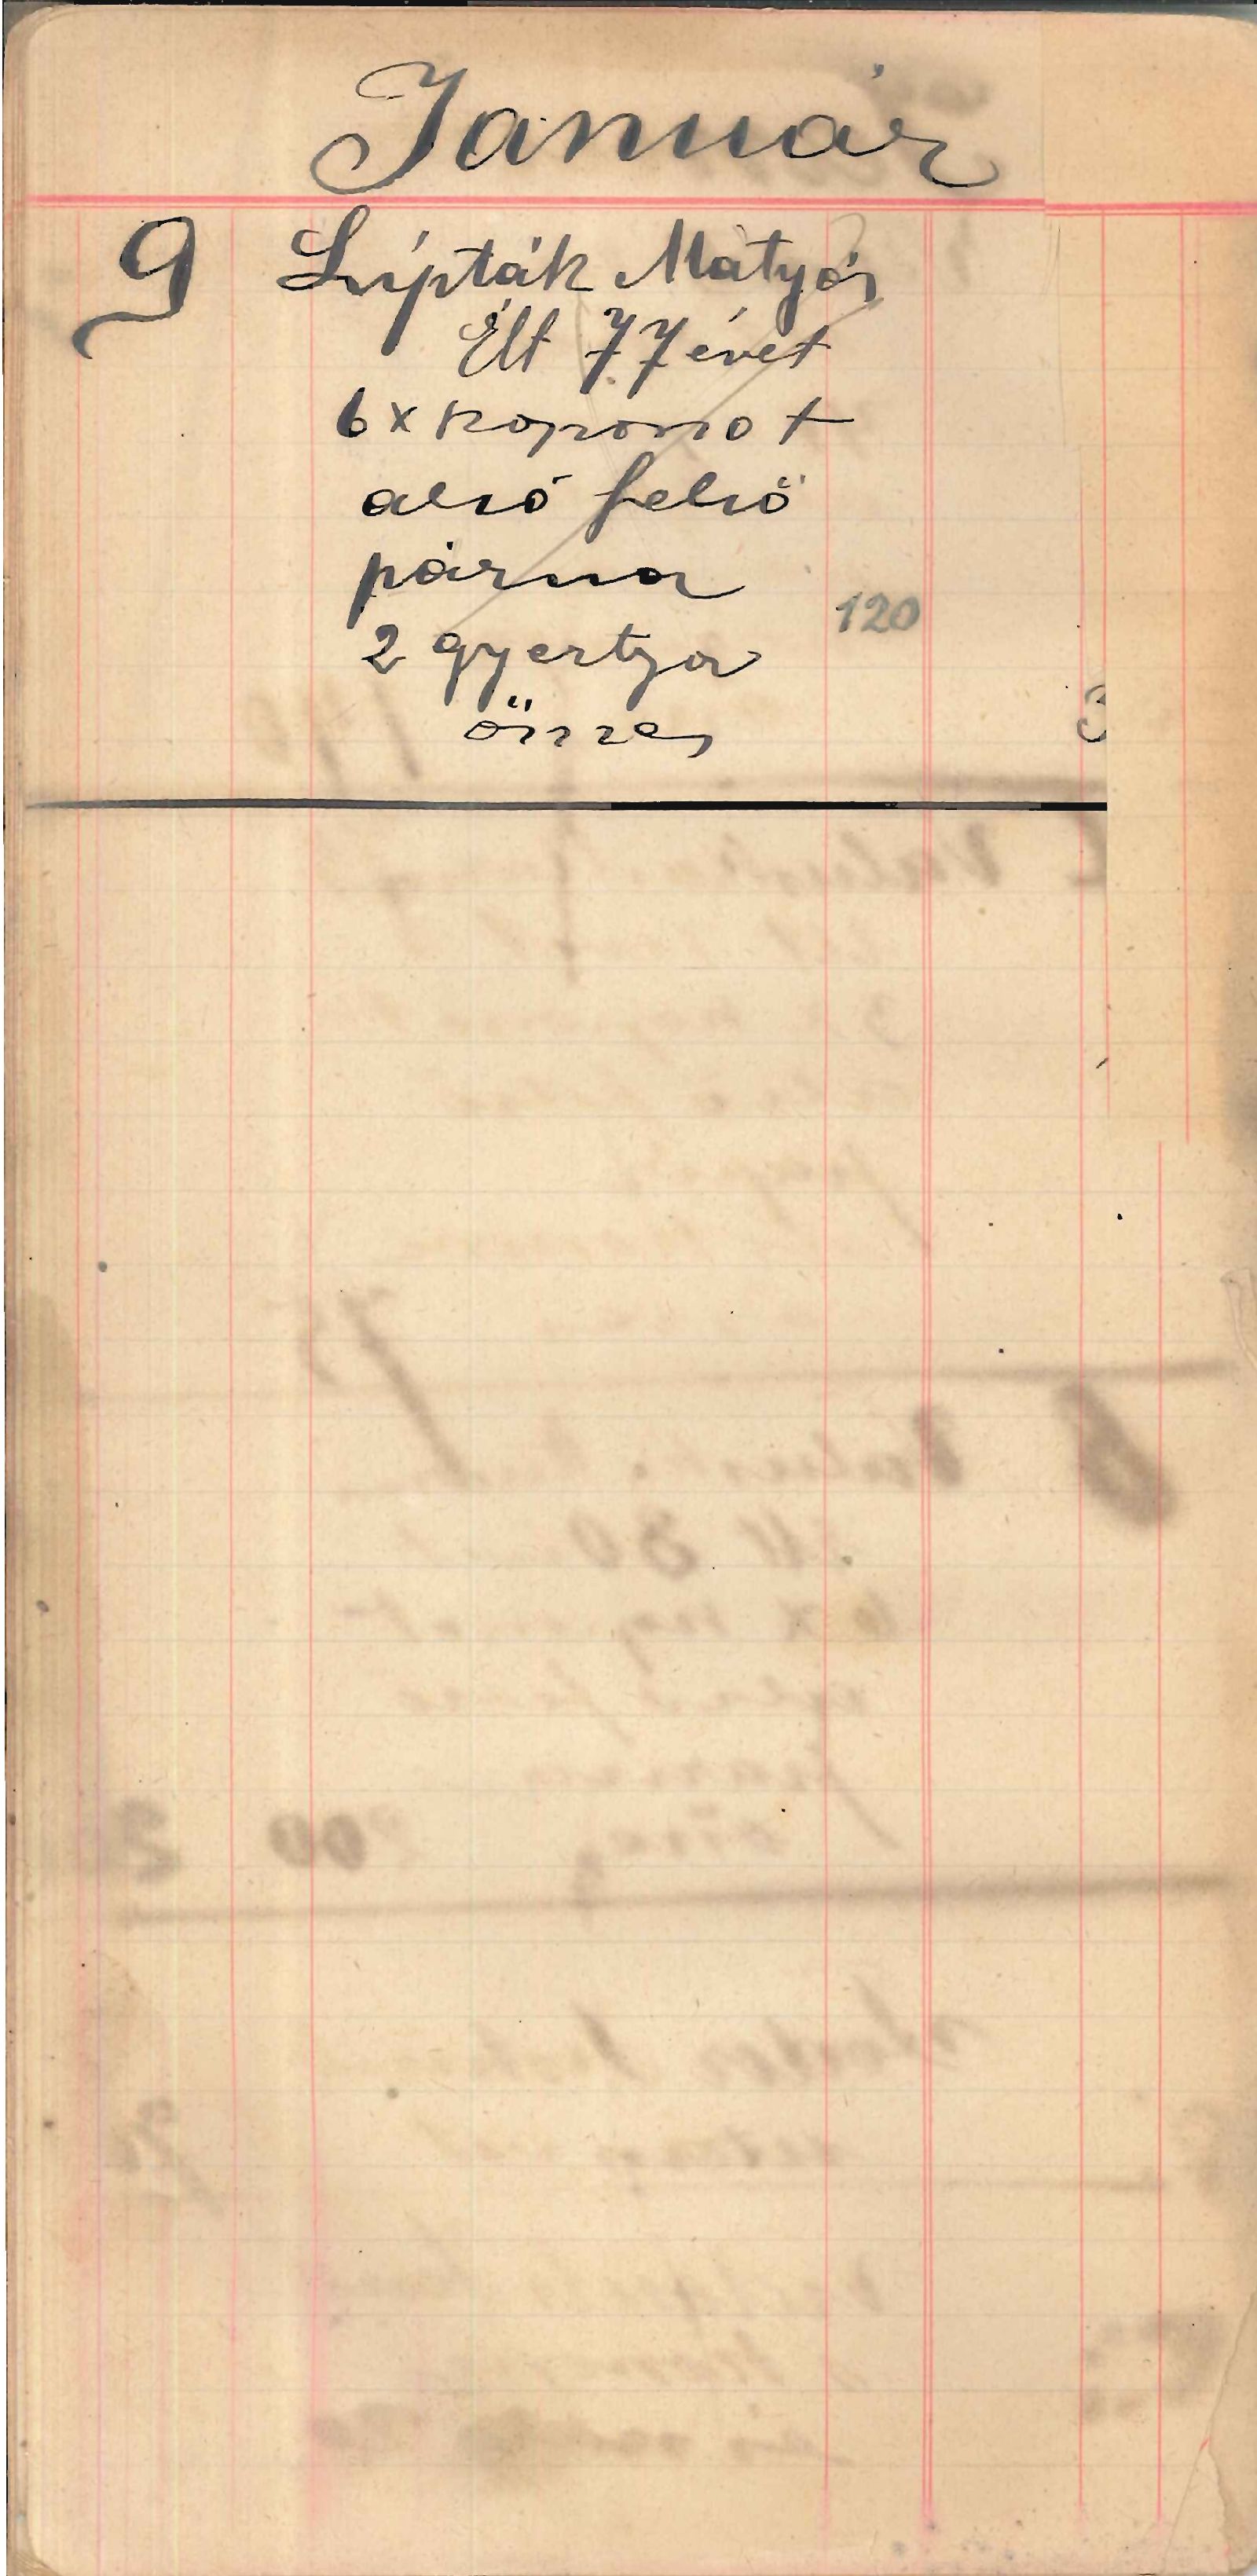 Január
9 Lipták Mátyás
Élt 77 évet
6x koporsot
alsó felső
párna
120
2 gyertya
össze,
3